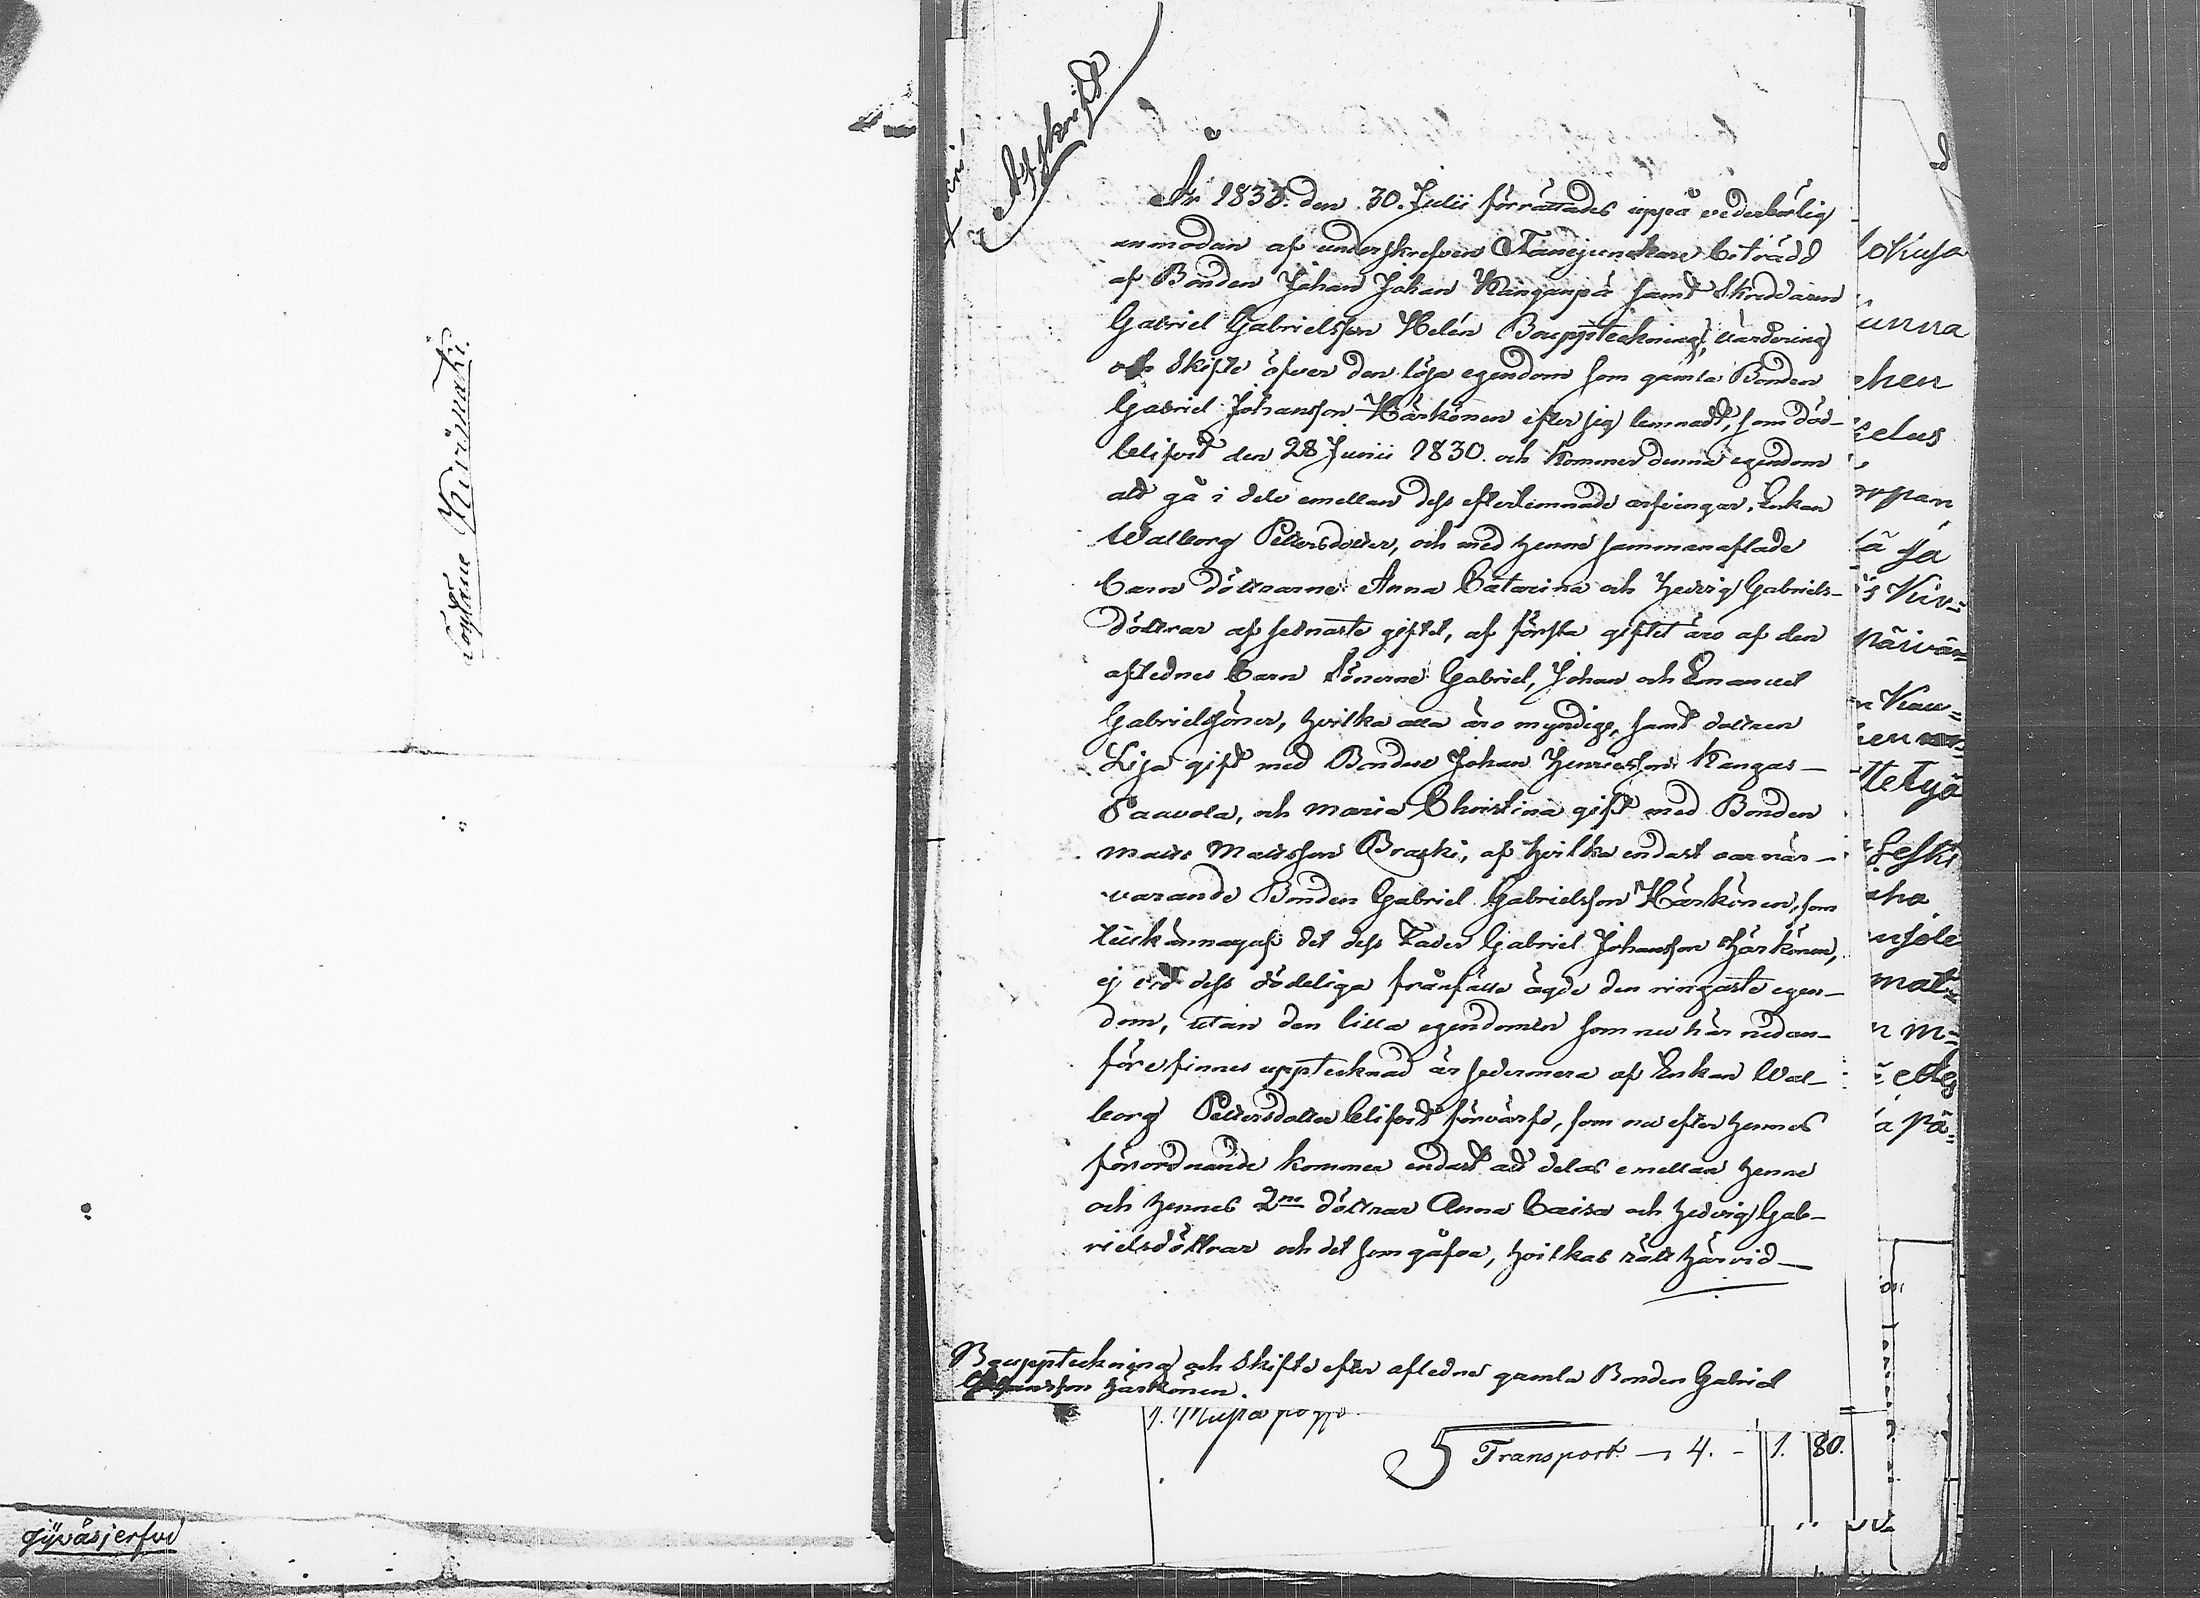 Töysäne Kivimäki.
Jÿväsjerfvi
Afskrift
År 1833. den 30. Julii förrättades uppå vederbörlig
anmodan af underskrefven Fanejunckare biträdd
af Bonden Johan Johan Kanganpä samt Skreddaren
Gabriel Gabrielsson Helén Bouppteckning, värdering
och skifte öfver den lösa egendom som gamla Bonden
Gabriel Johansson Härkönen efter sig lemnadt, som död-
blifvit den 28 Junii 1830. och kommer denna egendom
att gå i dele emellan dess efterlemnade arfvingar, Enkan
Walborg Pettersdotter, och med henne sammanaflade
barn döttrarne Anna Catarina och Hedvig Gabriels-
döttrar af sednaste giftet, af första giftet äro af den
aflednes barn Sönerne Gabriel, Johan och Emanuel
Gabrielssöner, hvilka alla äro myndige, samt dottren
Lisa gift med Bonden Johan Henricsson Kangas-
Paavola, och Maria Christina gift med Bonden
Matts Mattsson Braski, af hvilka endast var när-
varande Bonden Gabriel Gabrielsson Härkönen, som
tillkännagaf det dess Fader Gabriel Johansson Härkönen,
ej vid dess dödeliga frånfälle ägde den ringaste egen-
dom, utan den lilla egendomen som nu här nedan-
före finnes upptecknad är sedermera af Enkan Wal-
borg Pettersdotter blifvit förvärfd, som nu efter hennes
förordnande kommer endast att delas emellan henne
och hennes 2ne döttrar Anna Caisa och Hedvig Gab-
rielsdöttrar och det som gåfva, hvilkas rätt härvid
Bouppteckning och Skifte efter afledne gamla Bonden Gabriel
Johansson Härkönen.
Transport — 4. - 1. 80.